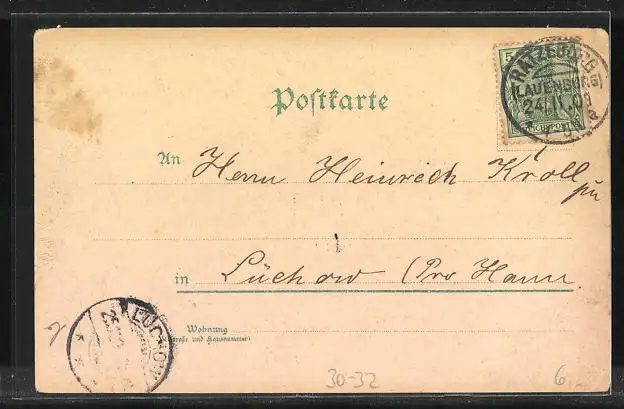 Postkarte
5
RATZEBURG
(LAUENBURG)
24/11.01
An Herrn Heinrich Kroll
jun
in Lüchow (Prov Hann
LÜCHOW
Wohnung
(Straße und Hausnummer)
30-32
6,-